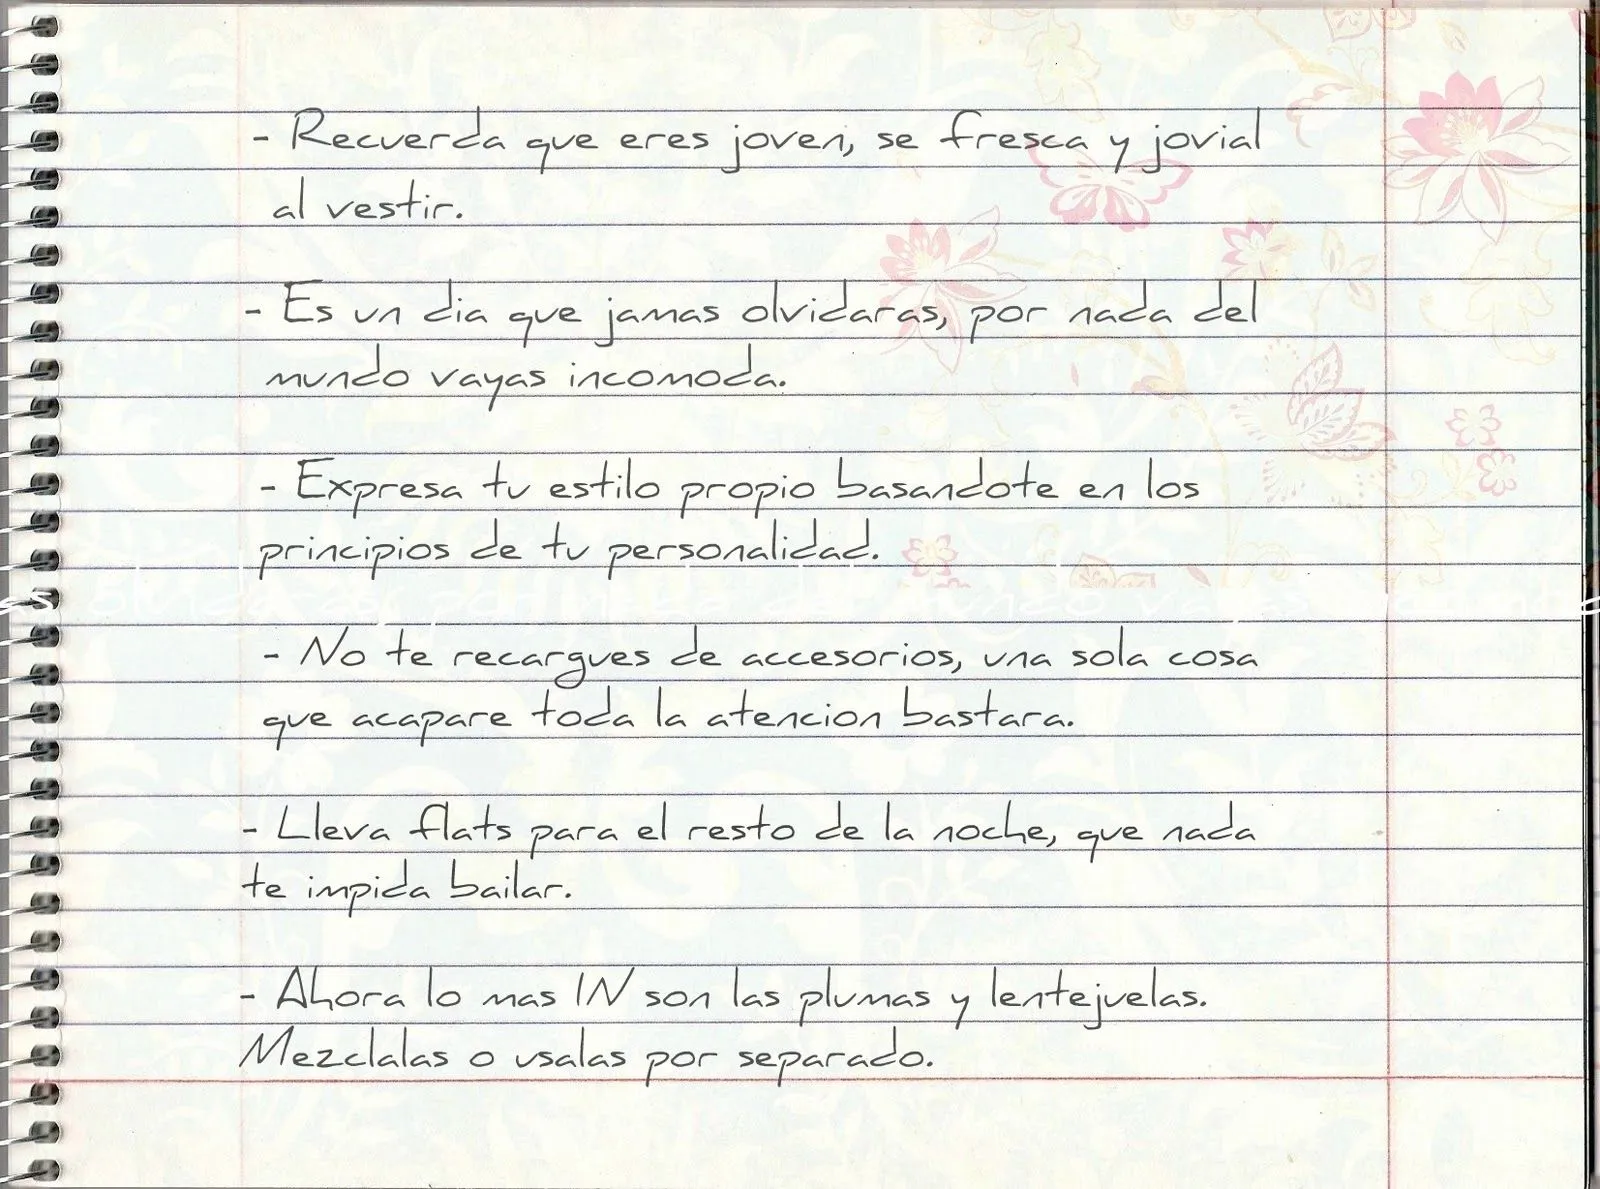 - Recuerda que eres joven, se fresca y jovial
al vestir.
- Es un dia que jamas olvidaras, por nada del
mundo vayas incomoda.
- Expresa tu estilo propio basandote en los
principios de tu personalidad.
- No te recargues de accesorios, una sola cosa
que acapare toda la atencion bastara.
- Lleva flats para el resto de la noche, que nada
te impida bailar.
- Ahora lo mas IN son las plumas y lentejuelas.
Mezclalas o usalas por separado.